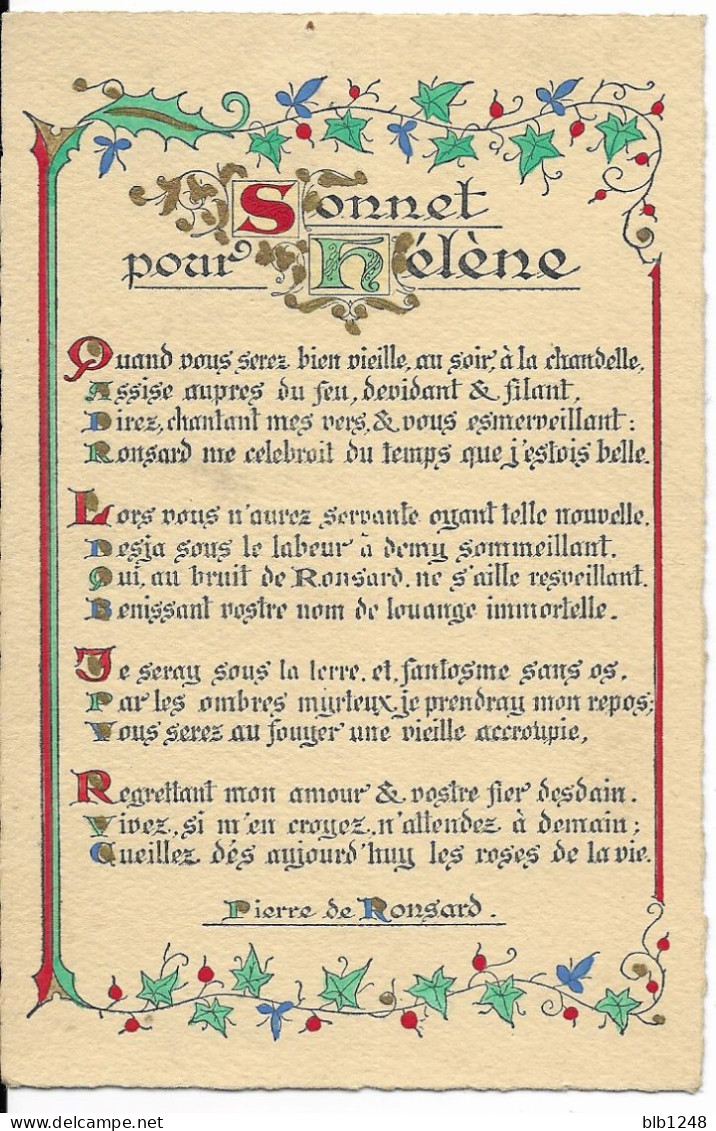 Sonnet
pour Hélène
Quand vous serez bien vieille, au soir, à la chandelle,
Assise aupres du feu, devidant & filant,
Direz, chantant mes vers, & vous esmerveillant :
Ronsard me celebroit du temps que j'estois belle.
Lors vous n'aurez servante oyant telle nouvelle,
Desja sous le labeur à demy sommeillant,
Qui, au bruit de Ronsard, ne s'aille resveillant,
Benissant vostre nom de louange immortelle.
Je seray sous la terre, et, fantosme sans os,
Par les ombres myrteux, je prendray mon repos ;
Vous serez au fouyer une vieille accroupie,
Regrettant mon amour & vostre fier desdain.
Vivez, si m'en croyez, n'attendez à demain ;
Cueillez dés aujourd'huy les roses de la vie.
Pierre de Ronsard.
blb1248